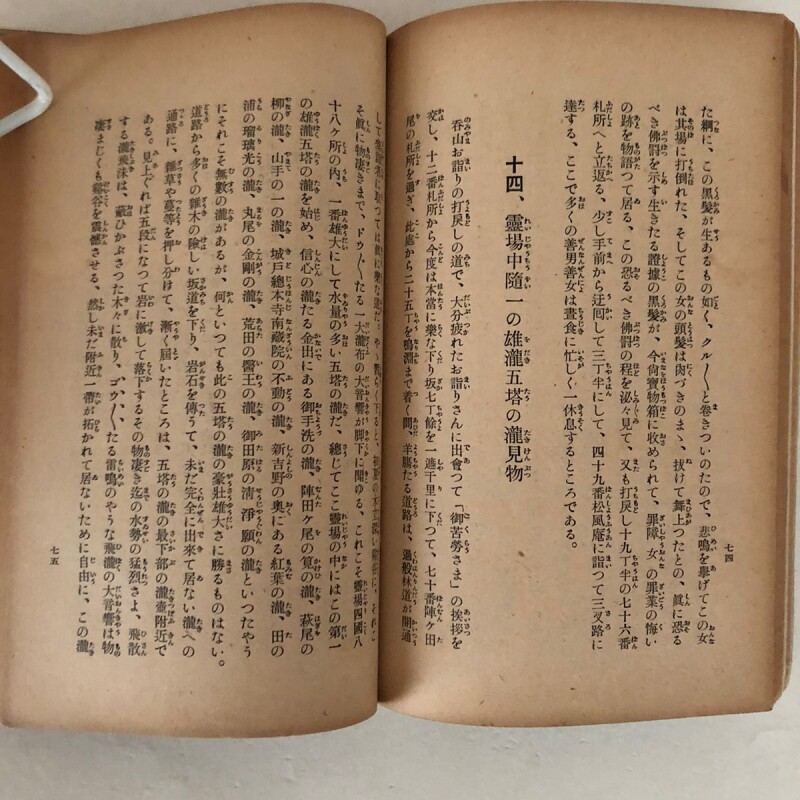 た綱に、この黒髮が生あるもの如く、クル〳〵と卷きついのたので、悲鳴を擧げてこの女
は其場に打倒れた、そしてこの女の頭髮は肉づきのまゝ、拔けて舞上つたとの、眞に恐る
べき佛罰を示す生きたる證據の黒髮が、今尙寶物箱に收められて、罪障女の罪業の悔い
の跡を物語つて居る、この恐るべき佛罰の程を泌々見て、又も打戾し十九丁半の七十六番
札所へと立返る、少し手前から迂囘して三丁半にして、四十九番松風庵に詣つて三叉路に
達する、ここで多くの善男善女は晝食に忙しく一休息するところである。
十四、靈場中隨一の雄瀧五塔の瀧見物
呑山お詣りの打戾しの道で、大分疲れたお詣りさんに出會つて「御苦勞さま」の挨拶を
交し、十二番札所から今度は本當に樂な下り坂七丁餘を一瀉千里に下つて、七十番陣ケ田
尾の札所を過ぎ、此處から二十五丁を鳴淵まで着く間、羊膓たる道路は、過般林道が開通
七四
そ眞に物凄きまで、ドウ〳〵たる一大瀧布の大音響が脚下に聞ゆる。これこそ靈場四國八
十八ケ所の內、一番雄大にして水量の多い五塔の瀧だ、總じてここ靈場の中にはこの第一
の雄瀧五塔の瀧を始め、信心の瀧たる金出にある御手洗の瀧、陣田ケ尾の筧の瀧、萩尾の
柳の瀧、山手の一の瀧、城戶總本寺南藏院の不動の瀧、新吉野の奧にある紅葉の瀧、田の
浦の瑠璃光の瀧、丸尾の金剛の瀧、荒田の醫王の瀧、御田原の淸淨願の瀧といつたやう
にそれこそ無數の瀧があるが、何といつても此の五塔の瀧の豪壯雄大さに勝るものはない。
道路から多くの雜木の險しい坂道を下り、岩石を傳うて、未だ完全に出來て居ない瀧への
通路に、雜草や蔓等を押し分けて、漸く屆いたところは、五塔の瀧の最下部の瀧壺附近で
ある。見上ぐれば五段になつて岩に激して落下するその物凄き迄の水勢の猛烈さよ、飛散
する瀧飛沫は、蔽ひかぶさつた木々に散り、ゴウ〳〵たる雷鳴のやうな飛瀧の大音響は物
凄まじくも谿谷を震撼させる、然し未だ附近一帶が拓かれて居ないために自由に、この瀧
七五